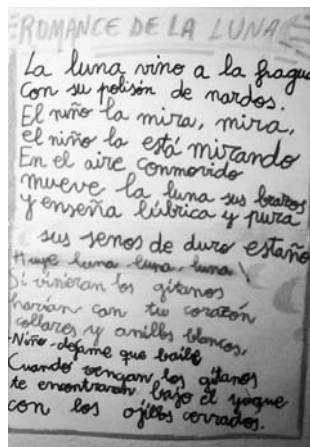 ROMANCE DE LA LUNA
La luna vino a la fragua
Con su polisón de nardos.
El niño la mira, mira,
el niño la está mirando
En el aire conmovido
mueve la luna sus brazos
y enseña lúbrica y pura
sus senos de duro estaño
Huye luna, luna, luna!
Si vinieran los gitanos
harían con tu corazón
collares y anillos blancos,
-Niño-dejame que baile
Cuando vengan los gitanos
te encontraran bajo el yunque
con los ojillos cerrados.